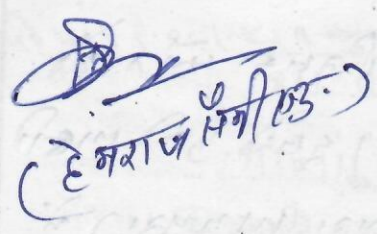 (हेमराज सैनी एड.)